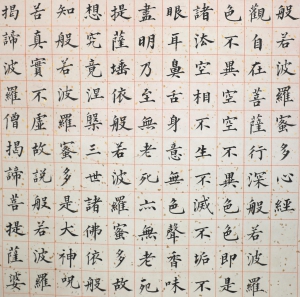 般若波羅蜜多心經
觀自在菩薩行深般若波羅
色不異空空不異色色即是
諸法空相不生不滅不垢不
眼耳鼻舌身意無色聲香味
盡明乃至無老死亦無老死
提薩埵依般若波羅蜜多故
想究竟涅槃三世諸佛依般
知般若波羅蜜多是大神呪
若真實不虛故說般若波羅
揭諦波羅僧揭諦菩提薩婆